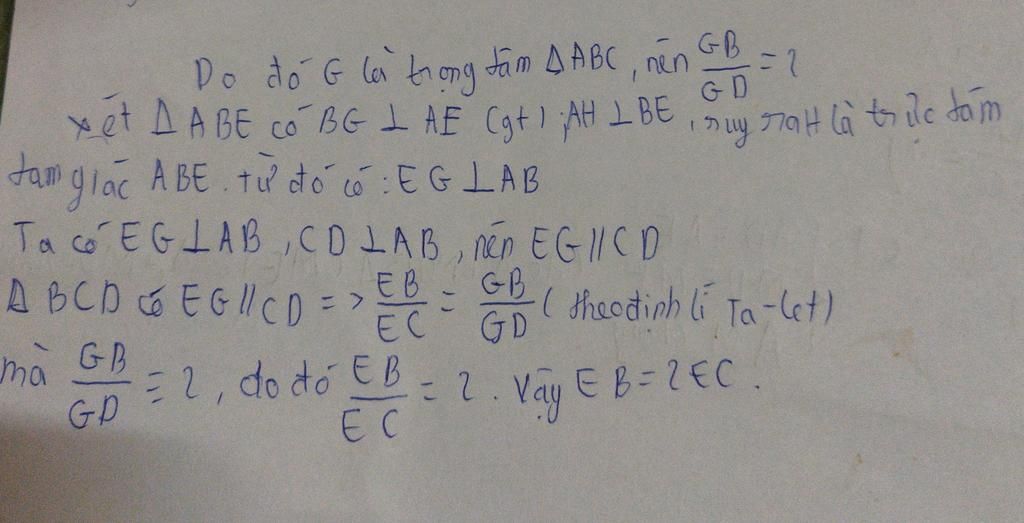 Do đó G là trọng tâm ΔABC, nên GB/GD = 2
xét ΔABE có BG ⊥ AE (gt); AH ⊥ BE, suy ra H là trực tâm
tam giác ABE. từ đó có: EG ⊥ AB
Ta có EG ⊥ AB, CD ⊥ AB, nên EG // CD
Δ BCD có EG // CD => EB/EC = GB/GD (theo định lí Ta-let)
mà GB/GD = 2, do đó EB/EC = 2. Vậy EB = 2EC.